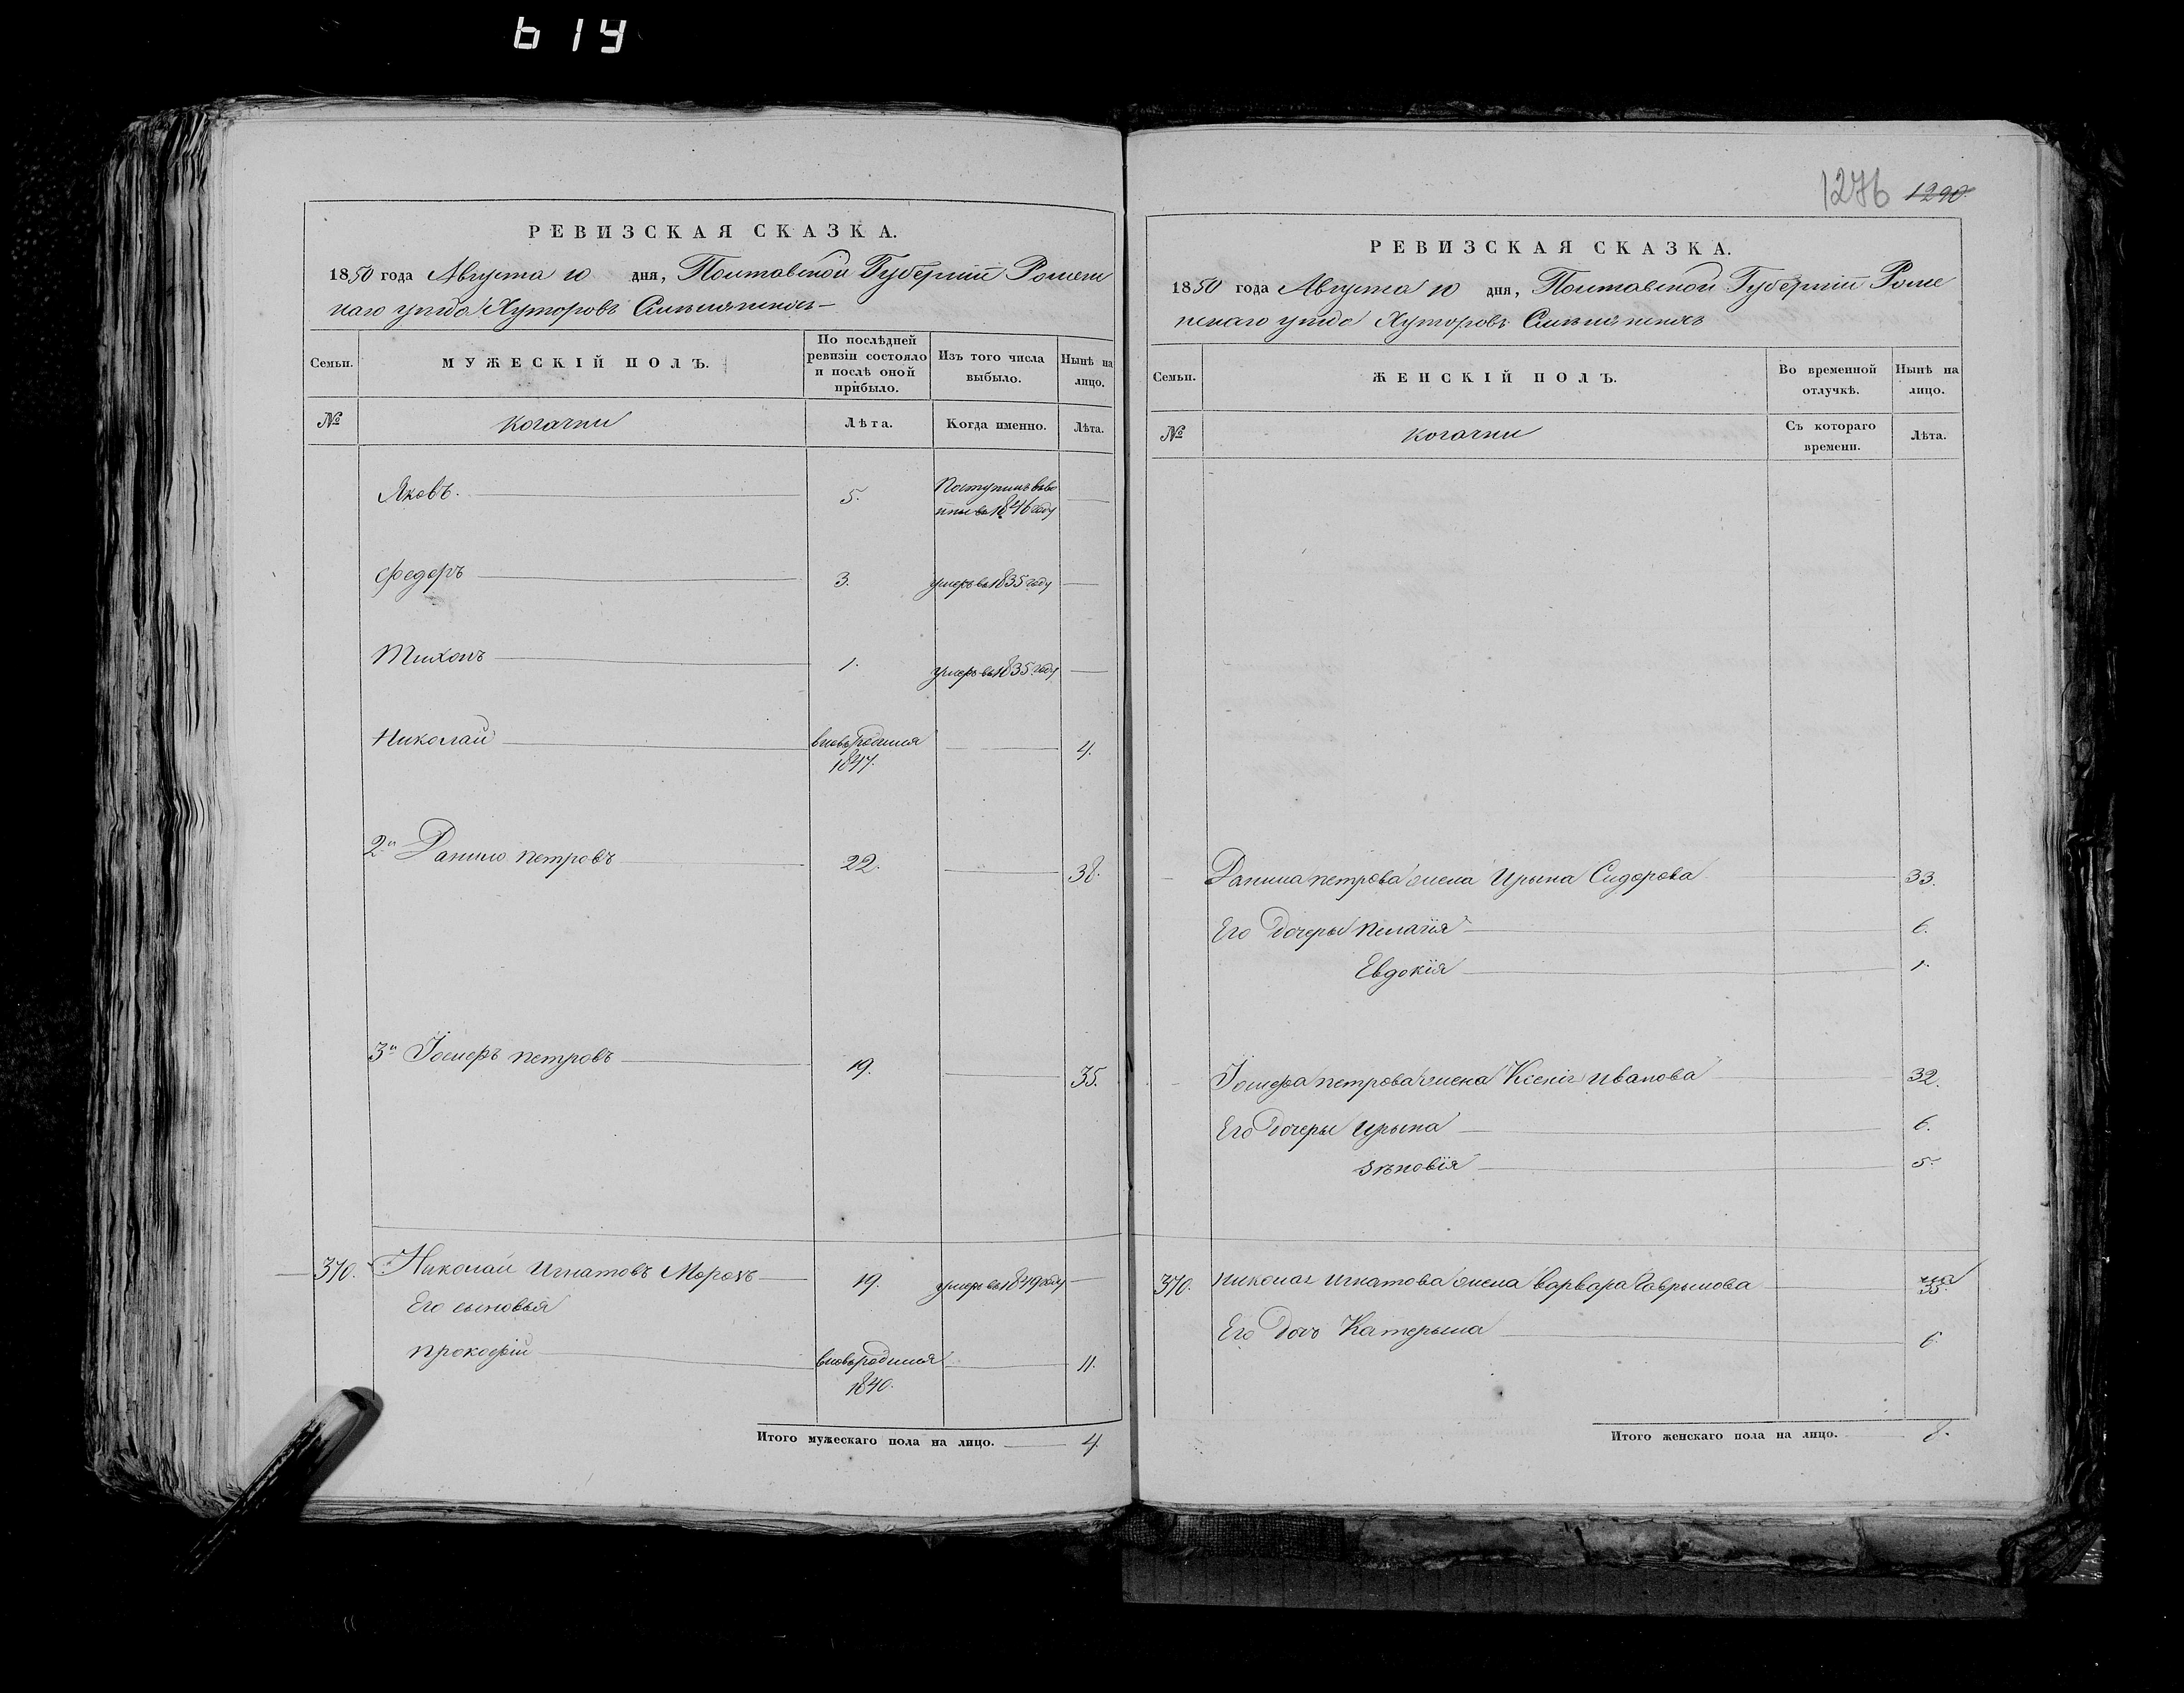 614
РЕВИЗСКАЯ СКАЗКА.
1850 года Августа 10 дня, Полтавской Губерніи Ромен
наго уезда Хуторовъ
Семьи.
МУЖЕСКІЙ ПОЛЪ.
По послѣдней ревизіи состояло и послѣ оной прибыло.
Изъ того числа выбыло.
Нынѣ на лицо.
№
козачки
Лѣта.
Когда именно.
Лѣта.
Яковъ.
5.
Поступилъ
въ 1846 году
Федоръ
3.
умеръ въ 1835 году
Тихонъ
1.
умеръ въ 1835 году
Николай
вновьродился
1847.
4.
2й Данило петровъ
22.
38.
3й Іосифъ петровъ
19.
35.
370. Николай Игнатовъ Морохъ
19.
умеръ въ 1849 году
Его сыновья
прокофій
вновьродился
1840.
11.
Итого мужескаго пола на лицо. 4.
1276 1290.
РЕВИЗСКАЯ СКАЗКА.
1850 года Августа 10 дня, Полтавской Губерніи Роме
нскаго уезда Хуторовъ
Семьи.
ЖЕНСКІЙ ПОЛЪ.
Во временной отлучкѣ.
Нынѣ на лицо.
№
козачки
Съ котораго времени.
Лѣта.
Данила петрова жена Ирына Сидорова 33.
Его дочеры пелагія 6.
Евдокія 1.
Іосифа петрова жена Ксенія Иванова 32.
Его дочеры Ирына 6.
Зѣновія 5.
370. николая игнатова жена варвара Гаврылова 35.
Его дочь Катерына 6.
Итого женскаго пола на лицо. 8.